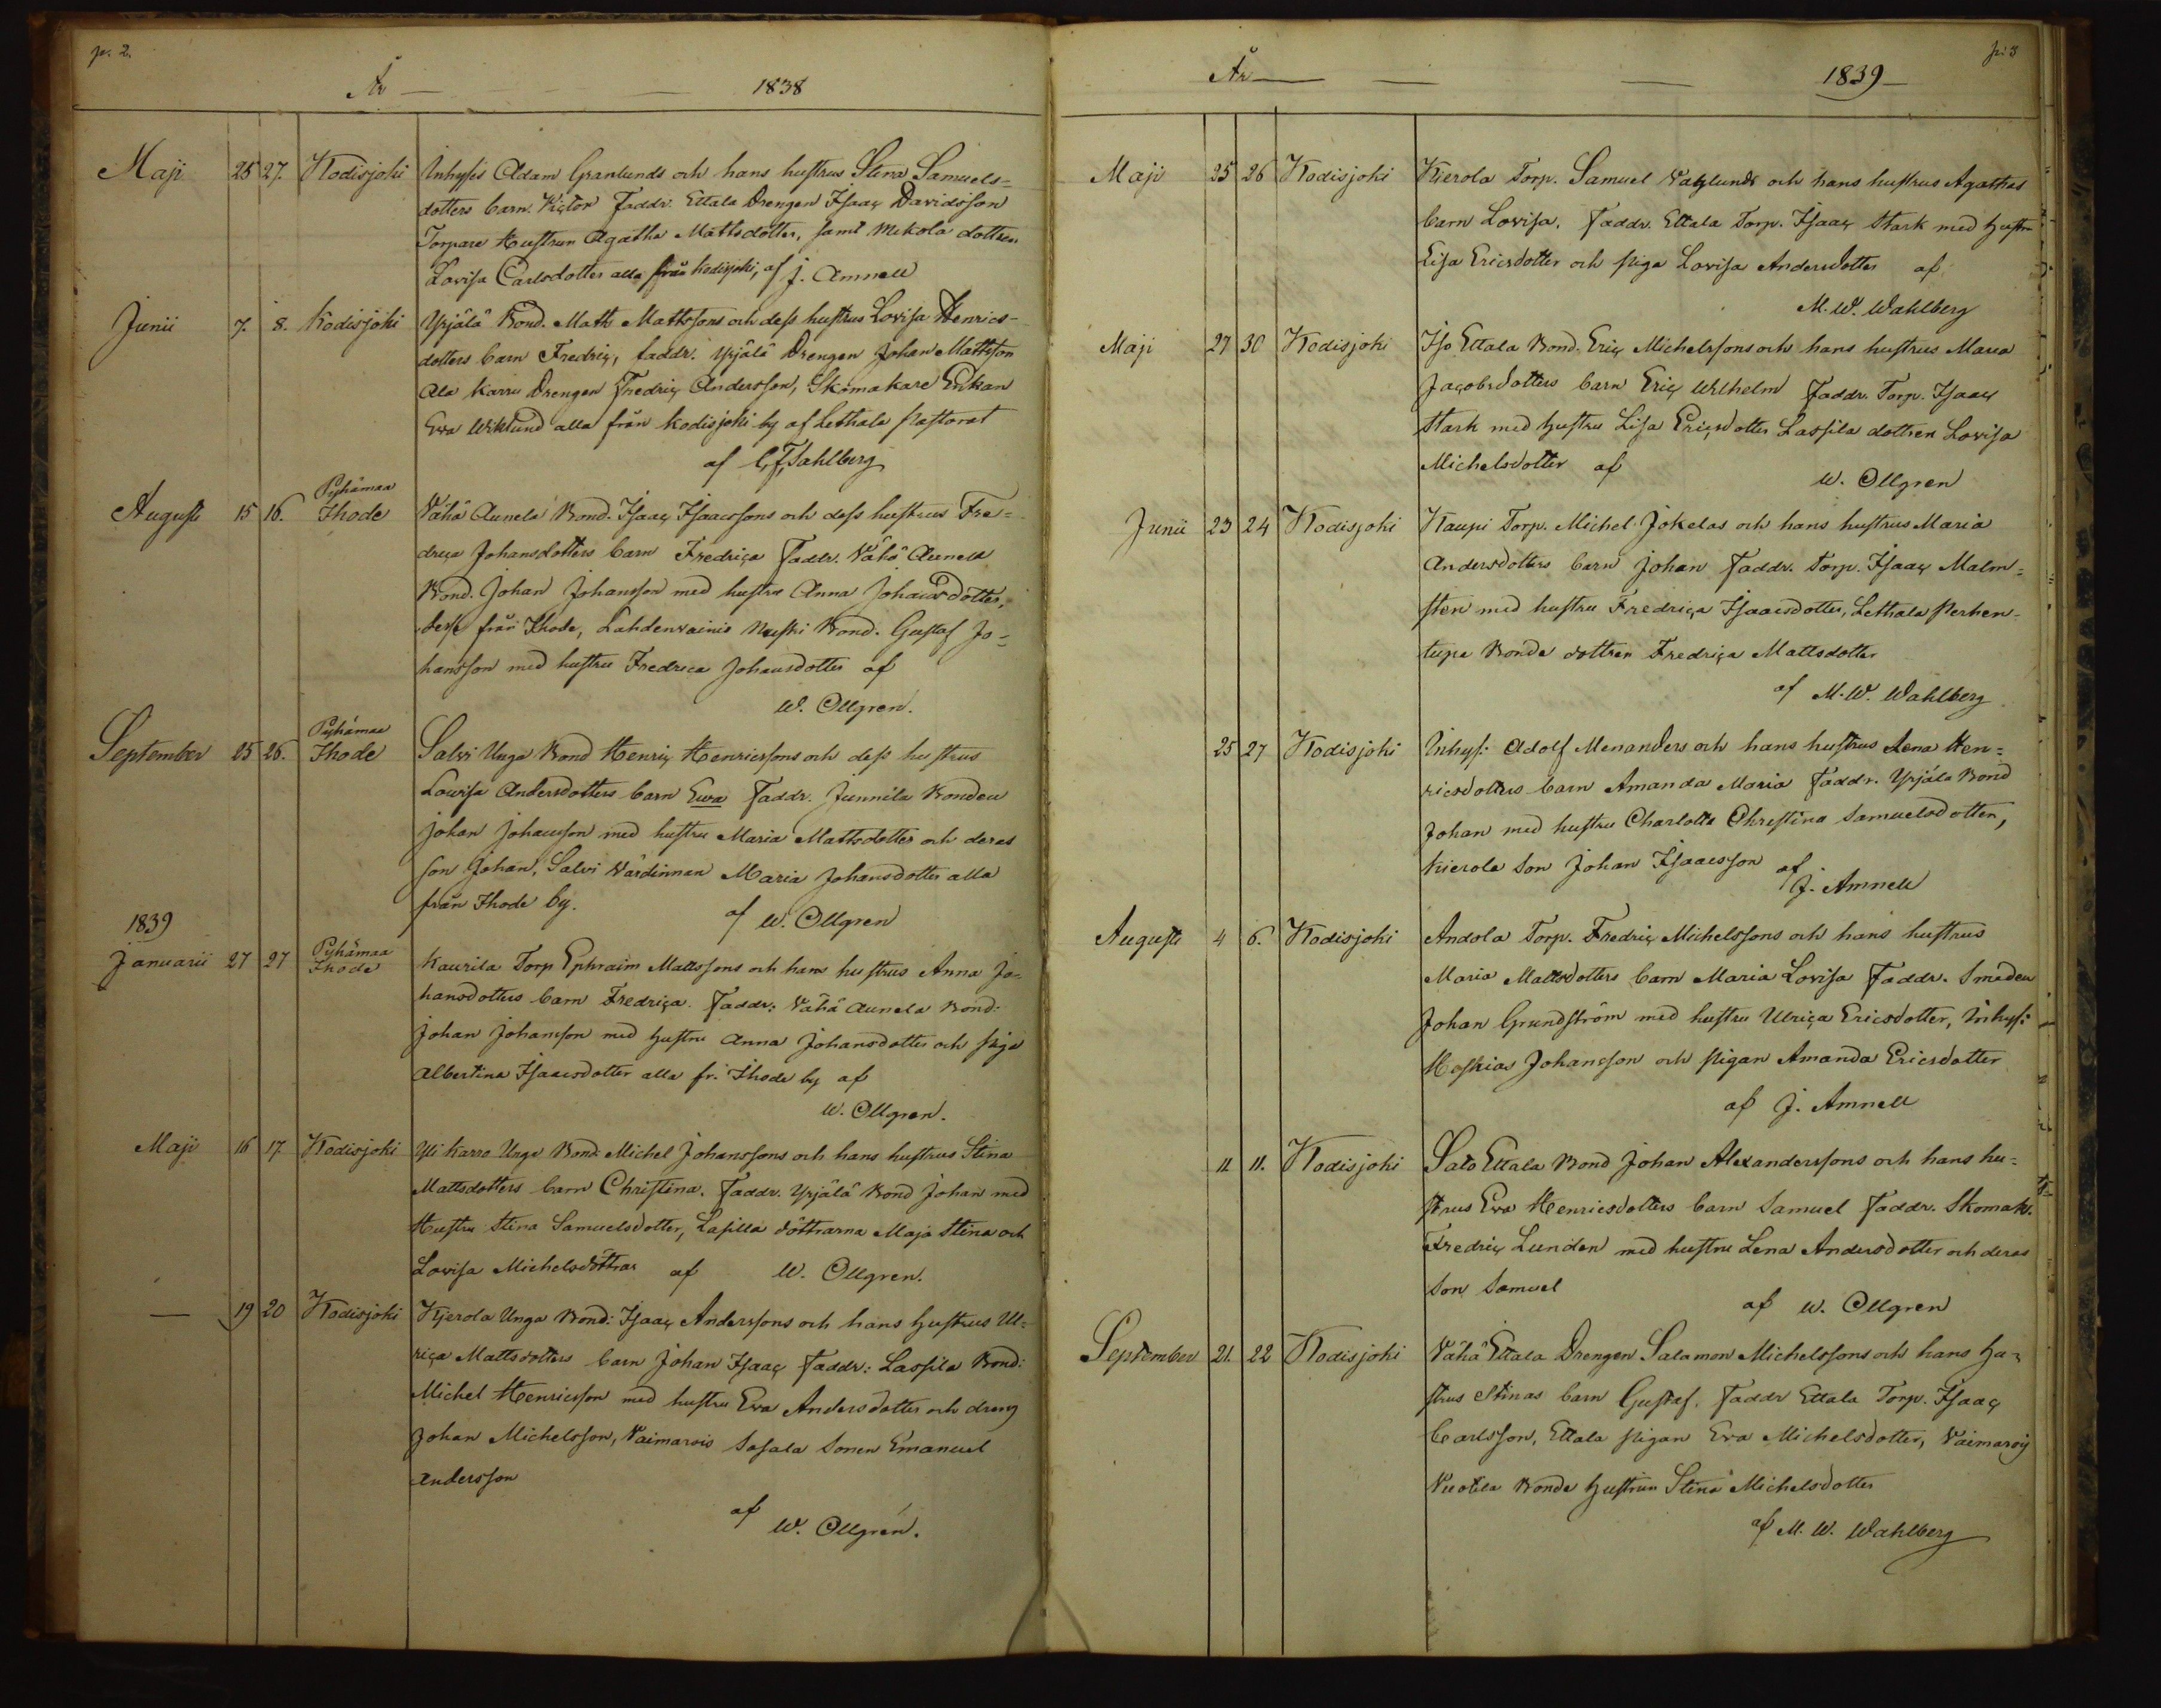 p. 2.
År — — 1838
Maji 25 27. Kodisjoki Inhyses Adam Granlunds och hans hustrus Stina Samuels=
dotters barn Victor Faddr. Ettala Drengen Isaac Davidsson
Torpare Hustrun Agatha Mattsdotter, samt Mikola dottren
Lovisa Carlsdotter alla från Kodisjoki, af J. Amnell
Junii 7. 8. Kodisjoki Yrjälä Bond. Math Mattssons och dess hustrus Lovisa Henrics-
dotters barn Fredric, faddr. Yrjälä Drengen Johan Mattsson
Ala Karru Drengen Fredric Andersson, Skomakare Enkan
Eva Wiklund alla från Kodisjoki by af Lethala Pastorat
af Sahlberg
Augusti 15 16. Pyhämaa
Ihode Vähä Aunela Bond. Isaac Isaacssons och dess hustrus Fre=
drica Johansdotters barn Fredrica Faddr. Vähä Aunela
Bond. Johan Johansson med hustru Anna Johansdotter,
desse från Ihode, Lahdenvainio Bond. Gustaf Jo=
hansson med hustru Fredrica Johansdotter af
W. Ollgren.
September 25 26. Pyhämaa
Ihode Salvi Unga Bond Henric Henricssons och dess hustrus
Lovisa Andersdotters barn Ewa Faddr. Junnila Bonden
Johan Johansson med hustru Maria Mattsdotter och deras
son Johan, Salvi Värdinnan Maria Johansdotter alla
från Ihode by. af W. Ollgren
1839
Januarii 27 27 Pyhämaa
Ihode Kaurila Torp Ephraim Mattssons och hans hustrus Anna Jo-
hansdotters barn Fredrica. Faddr: Vähä Aunela Bond:
Johan Johansson med hustru Anna Johansdotter och piga
Albertina Isaacsdotter alla fr. Ihode by af
W. Ollgren.
Maji 16 17. Kodisjoki Yli Karro Unge Bond: Michel Johanssons och hans hustrus Stina
Mattsdotters barn Christina. Faddr. Yrjälä Bond Johan med
Hustru Stina Samuelsdotter, Lasilla döttrarna Maja Stina och
Lovisa Michelsdöttrar af W. Ollgren.
— 19 20 Kodisjoki Kjerola Unga Bond: Isaac Anderssons och hans hustrus Ul=
rica Mattsdotters barn Johan Isaac Faddr: Lassila Bond:
Michel Henricsson med hustru Eva Andersdotter och dreng
Johan Michelsson, Vaimarois Sasala Sonen Emanuel
Andersson
af
W. Ollgren.
p: 3
År — — — 1839 —
Maji 25 26 Kodisjoki Kierola Torp. Samuel Vaglunds och hans hustrus Agathas
barn Lovisa. Faddr. Ettala Torp. Isaac Stark med hustru
Lisa Ericsdotter och piga Lovisa Andersdotter af
M. W. Wahlberg
Maji 27 30 Kodisjoki Iso Ettala Bond. Eric Michelssons och hans hustrus Maria
Jacobsdotters barn Eric Wilhelm Faddr. Torp. Isaac
Stark med hustru Lisa Ericsdotter Lassila dottren Lovisa
Michelsdotter af
W. Ollgren
Junii 23 24 Kodisjoki Kaupi Torp. Michel Jokelas och hans hustrus Maria
Andersdotters barn Johan Faddr. Torp. Isaac Malm=
sten med hustru Fredrica Isaacsdotter, Lethala Perhen-
tupa Bonde dottren Fredrica Mattsdotter
af M. W. Wahlberg
25 27 Kodisjoki Inhys: Adolf Menanders och hans hustrus Lena Hen=
ricsdotters barn Amanda Maria Faddr. Yrjälä Bond
Johan med hustru Charlotta Christina Samuelsdotter,
Kierola Son Johan Isaacsson af
J. Amnell
Augusti 4 6. Kodisjoki Andola Torp. Fredric Michelssons och hans hustrus
Maria Mattsdotters barn Maria Lovisa Faddr. Smeden
Johan Grundström med hustru Ulrica Ericsdotter, Inhys:
Johansson och pigan Amanda Ericsdotter
af J. Amnell
11. 11. Kodisjoki Sato Ettala Bond Johan Alexanderssons och hans hu=
strus Eva Henricsdotters barn Samuel Faddr. Skomak.
Fredric Lunden med hustru Lena Andersdotter och deras
Son Samuel
af W. Ollgren
September 21. 22 Kodisjoki Vähä Ettala Drengen Salamon Michelssons och hans hu=
strus Stinas barn Gustaf. Faddr Ettala Torp. Isaac
Carlsson, Ettala pigan Eva Michelsdotter, Vaimaroij
Bonde hustrun Stina Michelsdotter
af M. W. Wahlberg